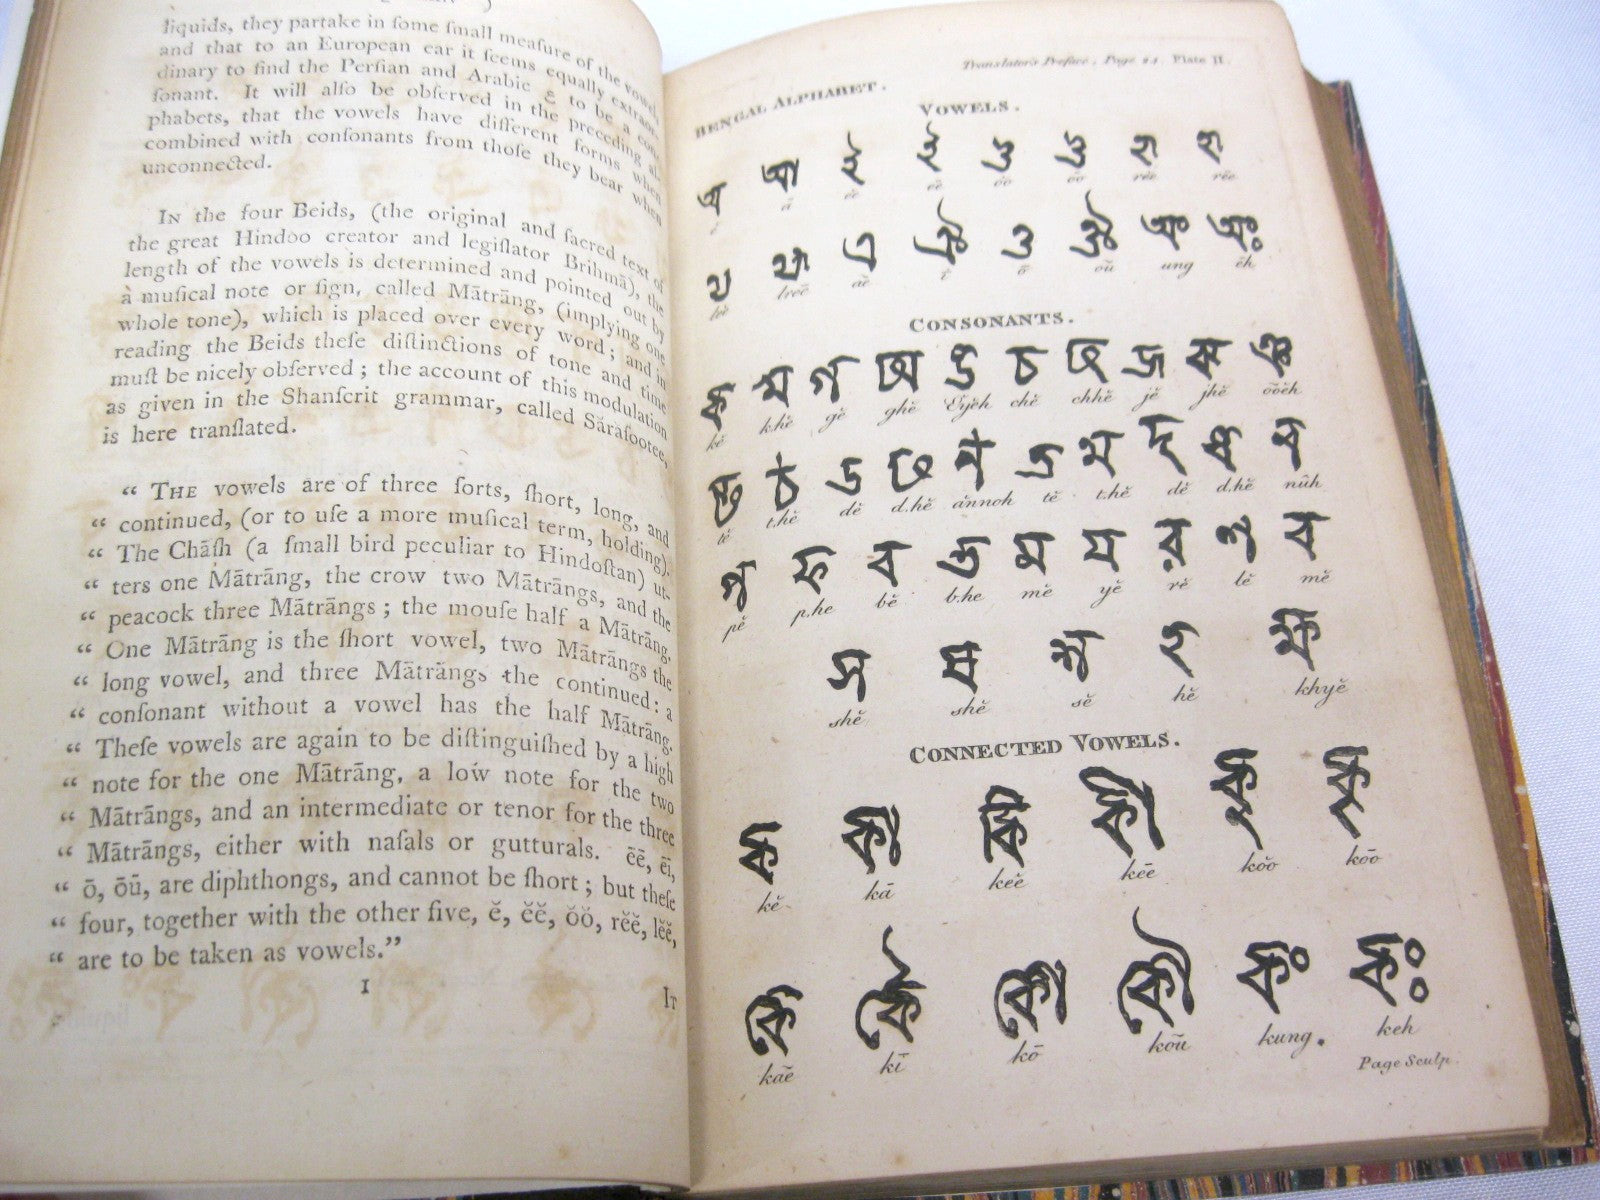 liquids, they partake in ſome ſmall meaſure of the vowel,
and that to an European ear it ſeems equally extraor-
dinary to find the Perſian and Arabic ع to be a con-
ſonant. It will alſo be obſerved in the preceding al-
phabets, that the vowels have different forms when
combined with conſonants from thoſe they bear when
unconnected.
In the four Beids, (the original and ſacred text of
the great Hindoo creator and legiſlator Brihmā), the
length of the vowels is determined and pointed out by
a muſical note or ſign, called Mātrāng, (implying one
whole tone), which is placed over every word; and in
reading the Beids theſe diſtinctions of tone and time
muſt be nicely obſerved; the account of this modulation
as given in the Shanſcrit grammar, called Sārāſootee,
is here tranſlated.
“ The vowels are of three ſorts, ſhort, long, and
“ continued, (or to uſe a more muſical term, holding).
“ The Chāſh (a ſmall bird peculiar to Hindoſtan) ut-
“ ters one Mātrāng, the crow two Mātrāngs, and the
“ peacock three Mātrāngs; the mouſe half a Mātrāng.
“ One Mātrāng is the ſhort vowel, two Mātrāngs the
“ long vowel, and three Mātrāngs the continued: a
“ conſonant without a vowel has the half Mātrāng.
“ Theſe vowels are again to be diſtinguiſhed by a high
“ note for the one Mātrāng, a low note for the two
“ Mātrāngs, and an intermediate or tenor for the three
“ Mātrāngs, either with naſals or gutturals. ēē, ēi,
“ ō, ōū, are diphthongs, and cannot be ſhort; but theſe
“ four, together with the other five, ĕ, ĕĕ, ŏŏ, rĕĕ, lĕĕ,
“ are to be taken as vowels.”
I
It
Translator's Preface, Page 24. Plate II.
BENGAL ALPHABET.
VOWELS.
অ আ ই ঈ উ ঊ ঋ ৠ
ā ĕĕ ēē ŏŏ ōō rĕĕ rēē
ঌ ৡ এ ঐ ও ঔ অং অঃ
lĕĕ lrēē āē ī ō ōū ung ĕh
CONSONANTS.
ক খ গ ঘ ঙ চ ছ জ ঝ ঞ
kĕ k.hĕ gĕ ghĕ chĕ chhĕ jĕ jhĕ
ট ঠ ড ঢ ণ ত থ দ ধ ন
tĕ t.hĕ dĕ d.hĕ ānnoh tĕ t.hĕ dĕ d.hĕ nŭh
প ফ ব ভ ম য র ল ব
pĕ p.he bĕ b.he mĕ yĕ rĕ lĕ mĕ
শ ষ স হ ক্ষ
shĕ shĕ sĕ hĕ khyĕ
CONNECTED VOWELS.
ক কা কি কী কু কূ
kĕ kā kĕĕ kēē kŏŏ kōō
কে কৈ কো কৌ কং কঃ
kāē kī kō kōū kung. keh
Page Sculp.